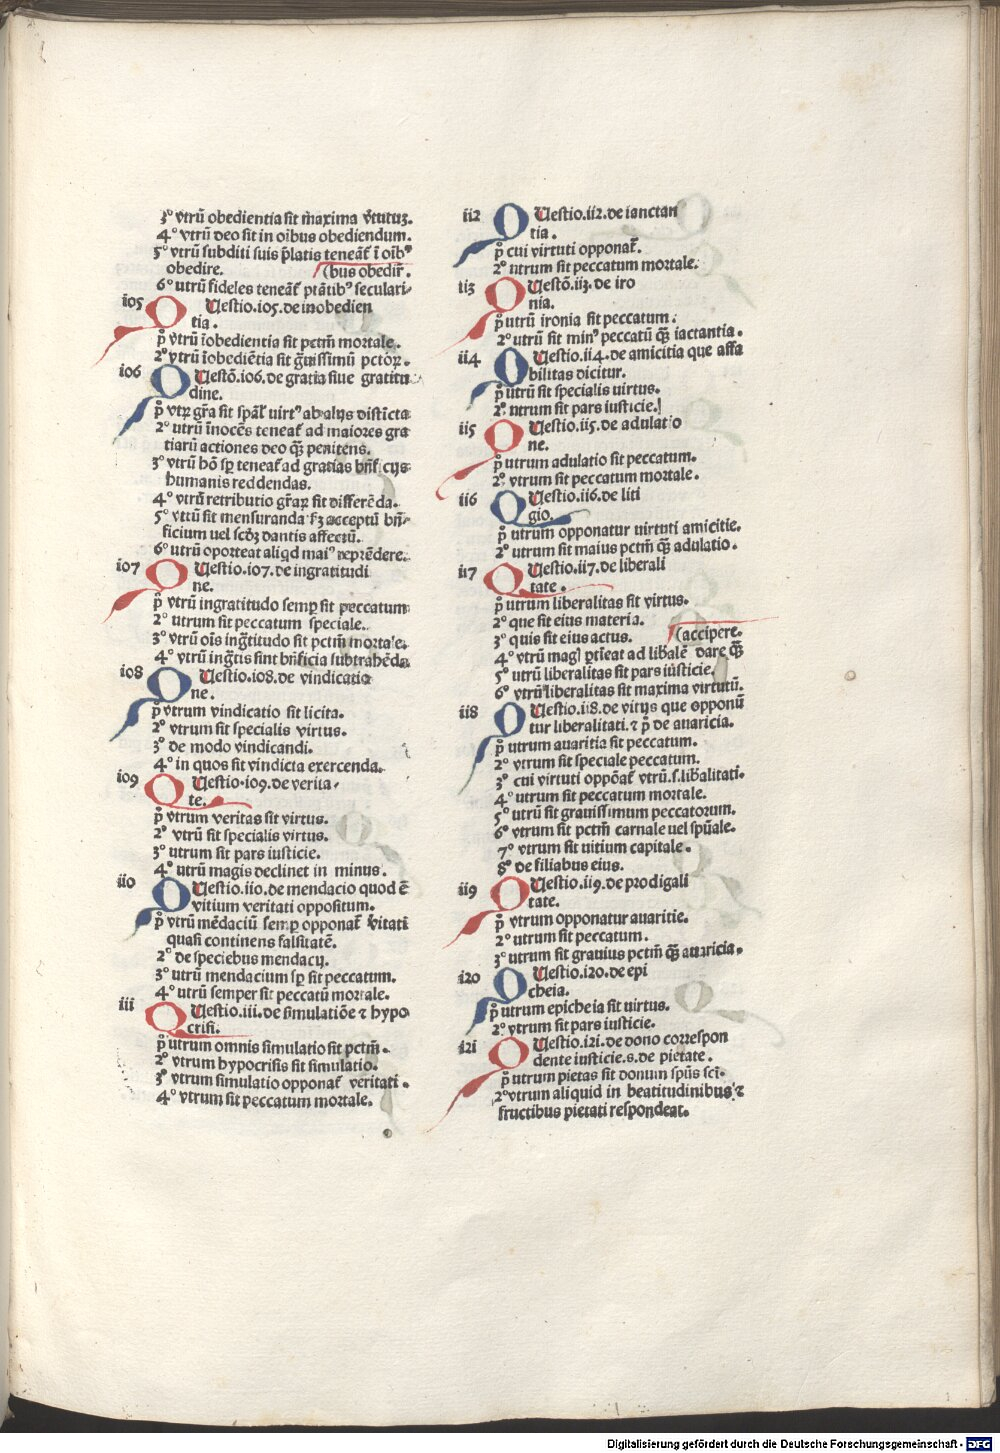 3° vtrū obedientia sit maxima v̄tutuꝫ.
4° vtrū deo sit in oībus obediendum.
5° vtrū subditi suis p̄latis teneāt ī oībꝰ
obedire. (bus obedir̄.
6° utrū fideles teneāt ptātibꝰ seculari⸗
i05 QUestio.i05.de inobedien
tia.
p̊ vtrū īobedientia sit pctm̄ mortale.
2° vtrū īobediētia sit ḡuissimū pctōꝝ.
i06 QUestō.i06.de gratia siue gratitu
dine.
p̊ vtꝝ gr̄a sit sp̄al' uirtꝰ ab alijs distīcta
2° utrū īnocēs teneāt ad maiores gra
tiarū actiones deo qꝫ̄ penitens.
3° vtrū hō sp̄ teneāt ad gratias bn̄ficijs
humanis reddendas.
4° vtrū retributio gr̄aꝝ sit differēda.
5° vtrū sit mensuranda fꝫ acceptū bn̄⸗
ficium uel scḋꝫ dantis affectū.
6° utrū oporteat aliqd maiꝰ rep̄edere.
i07 QUestio.i07.de ingratitudi
ne.
p̊ vtrū ingratitudo semꝑ sit peccatum
2° utrum sit peccatum speciale.
3° vtrū oīs ingr̄titudo sit pctm̄ mortale.
4° vtrū ingr̄tis sint bn̄ficia subtrahēda
i08 QUestio.i08.de vindicatio
ne.
p̊ vtrum vindicatio sit licita.
2° vtrum sit specialis virtus.
3° de modo vindicandi.
4° in quos sit vindicta exercenda.
i09 QUestio.i09.de verita⸗
te.
p̊ vtrum veritas sit virtus.
2° vtrū sit specialis virtus.
3° utrum sit pars iusticie.
4° utrū magis declinet in minus.
ii0 QUestio.ii0.de mendacio quod ē
vitium veritati oppositum.
p̊ vtrū mēdaciū semꝑ opponat̄ v̄itati
quasi continens falsitatē.
2° de speciebus mendacij.
3° utrū mendacium sp̄ sit peccatum.
4° utrū semper sit peccatū mortale.
iii QUestio.iii.de simulatiōe ⁊ hypo
crisi.
p̊ utrum omnis simulatio sit pctm̄.
2° vtrum hypocrisis sit simulatio.
3° vtrum simulatio opponat̄ veritati.
4° vtrum sit peccatum mortale.
ii2 QUestio.ii2.de ianctan
tia.
p̊ cui virtuti opponat̄.
2° utrum sit peccatum mortale.
ii3 QUestō.ii3.de iro
nia.
p̊ utrū ironia sit peccatum.
2° utrū sit minꝰ peccatū qꝫ̄ iactantia.
ii4 QUestio.ii4.de amicitia que affa
bilitas dicitur.
p̊ utrū sit specialis uirtus.
2° utrum sit pars iusticie.
ii5 QUestio.ii5.de adulatio
ne.
p̊ utrum adulatio sit peccatum.
2° vtrum sit peccatum mortale.
ii6 QUestio.ii6.de liti
gio.
p̊ utrum opponatur uirtuti amicitie.
2° utrum sit maius pctm̄ qꝫ̄ adulatio.
ii7 QUestio.ii7.de liberali
tate.
p̊ utrum liberalitas sit virtus.
2° que sit eius materia.
3° quis sit eius actus. (accipere.
4° vtrū magl ꝑtīeat ad lib̄alē dare qꝫ̄
5° utrū liberalitas sit pars iusticie.
6° vtrū liberalitas sit maxima virtutū.
ii8 QUestio.ii8.de vitijs que opponū
tur liberalitati.⁊ p̊ de auaricia.
p̊ utrum auaritia sit peccatum.
2° vtrum sit speciale peccatum.
3° cui virtuti oppōat̄ vtrū.s.lib̄alitati.
4° utrum sit peccatum mortale.
5° utrū sit grauissimum peccatorum.
6° vtrum sit pctm̄ carnale uel spūale.
7° vtrum sit uitium capitale.
8° de filiabus eius.
ii9 QUestio.ii9.de prodigali
tate.
p̊ vtrum opponatur auaritie.
2° utrum sit peccatum.
3° utrum sit grauius pctm̄ qꝫ̄ auaricia.
i20 QUestio.i20.de epi
cheia.
p̊ utrum epicheia sit uirtus.
2° vtrum sit pars iusticie.
i2i QUestio.i2i.de dono correspon
dente iusticie.s.de pietate.
p̊ utrum pietas sit donum spūs sci̅.
2° vtrum aliquid in beatitudinibus ⁊
fructibus pietati respondeat.
Digitalisierung gefördert durch die Deutsche Forschungsgemeinschaft - DFG